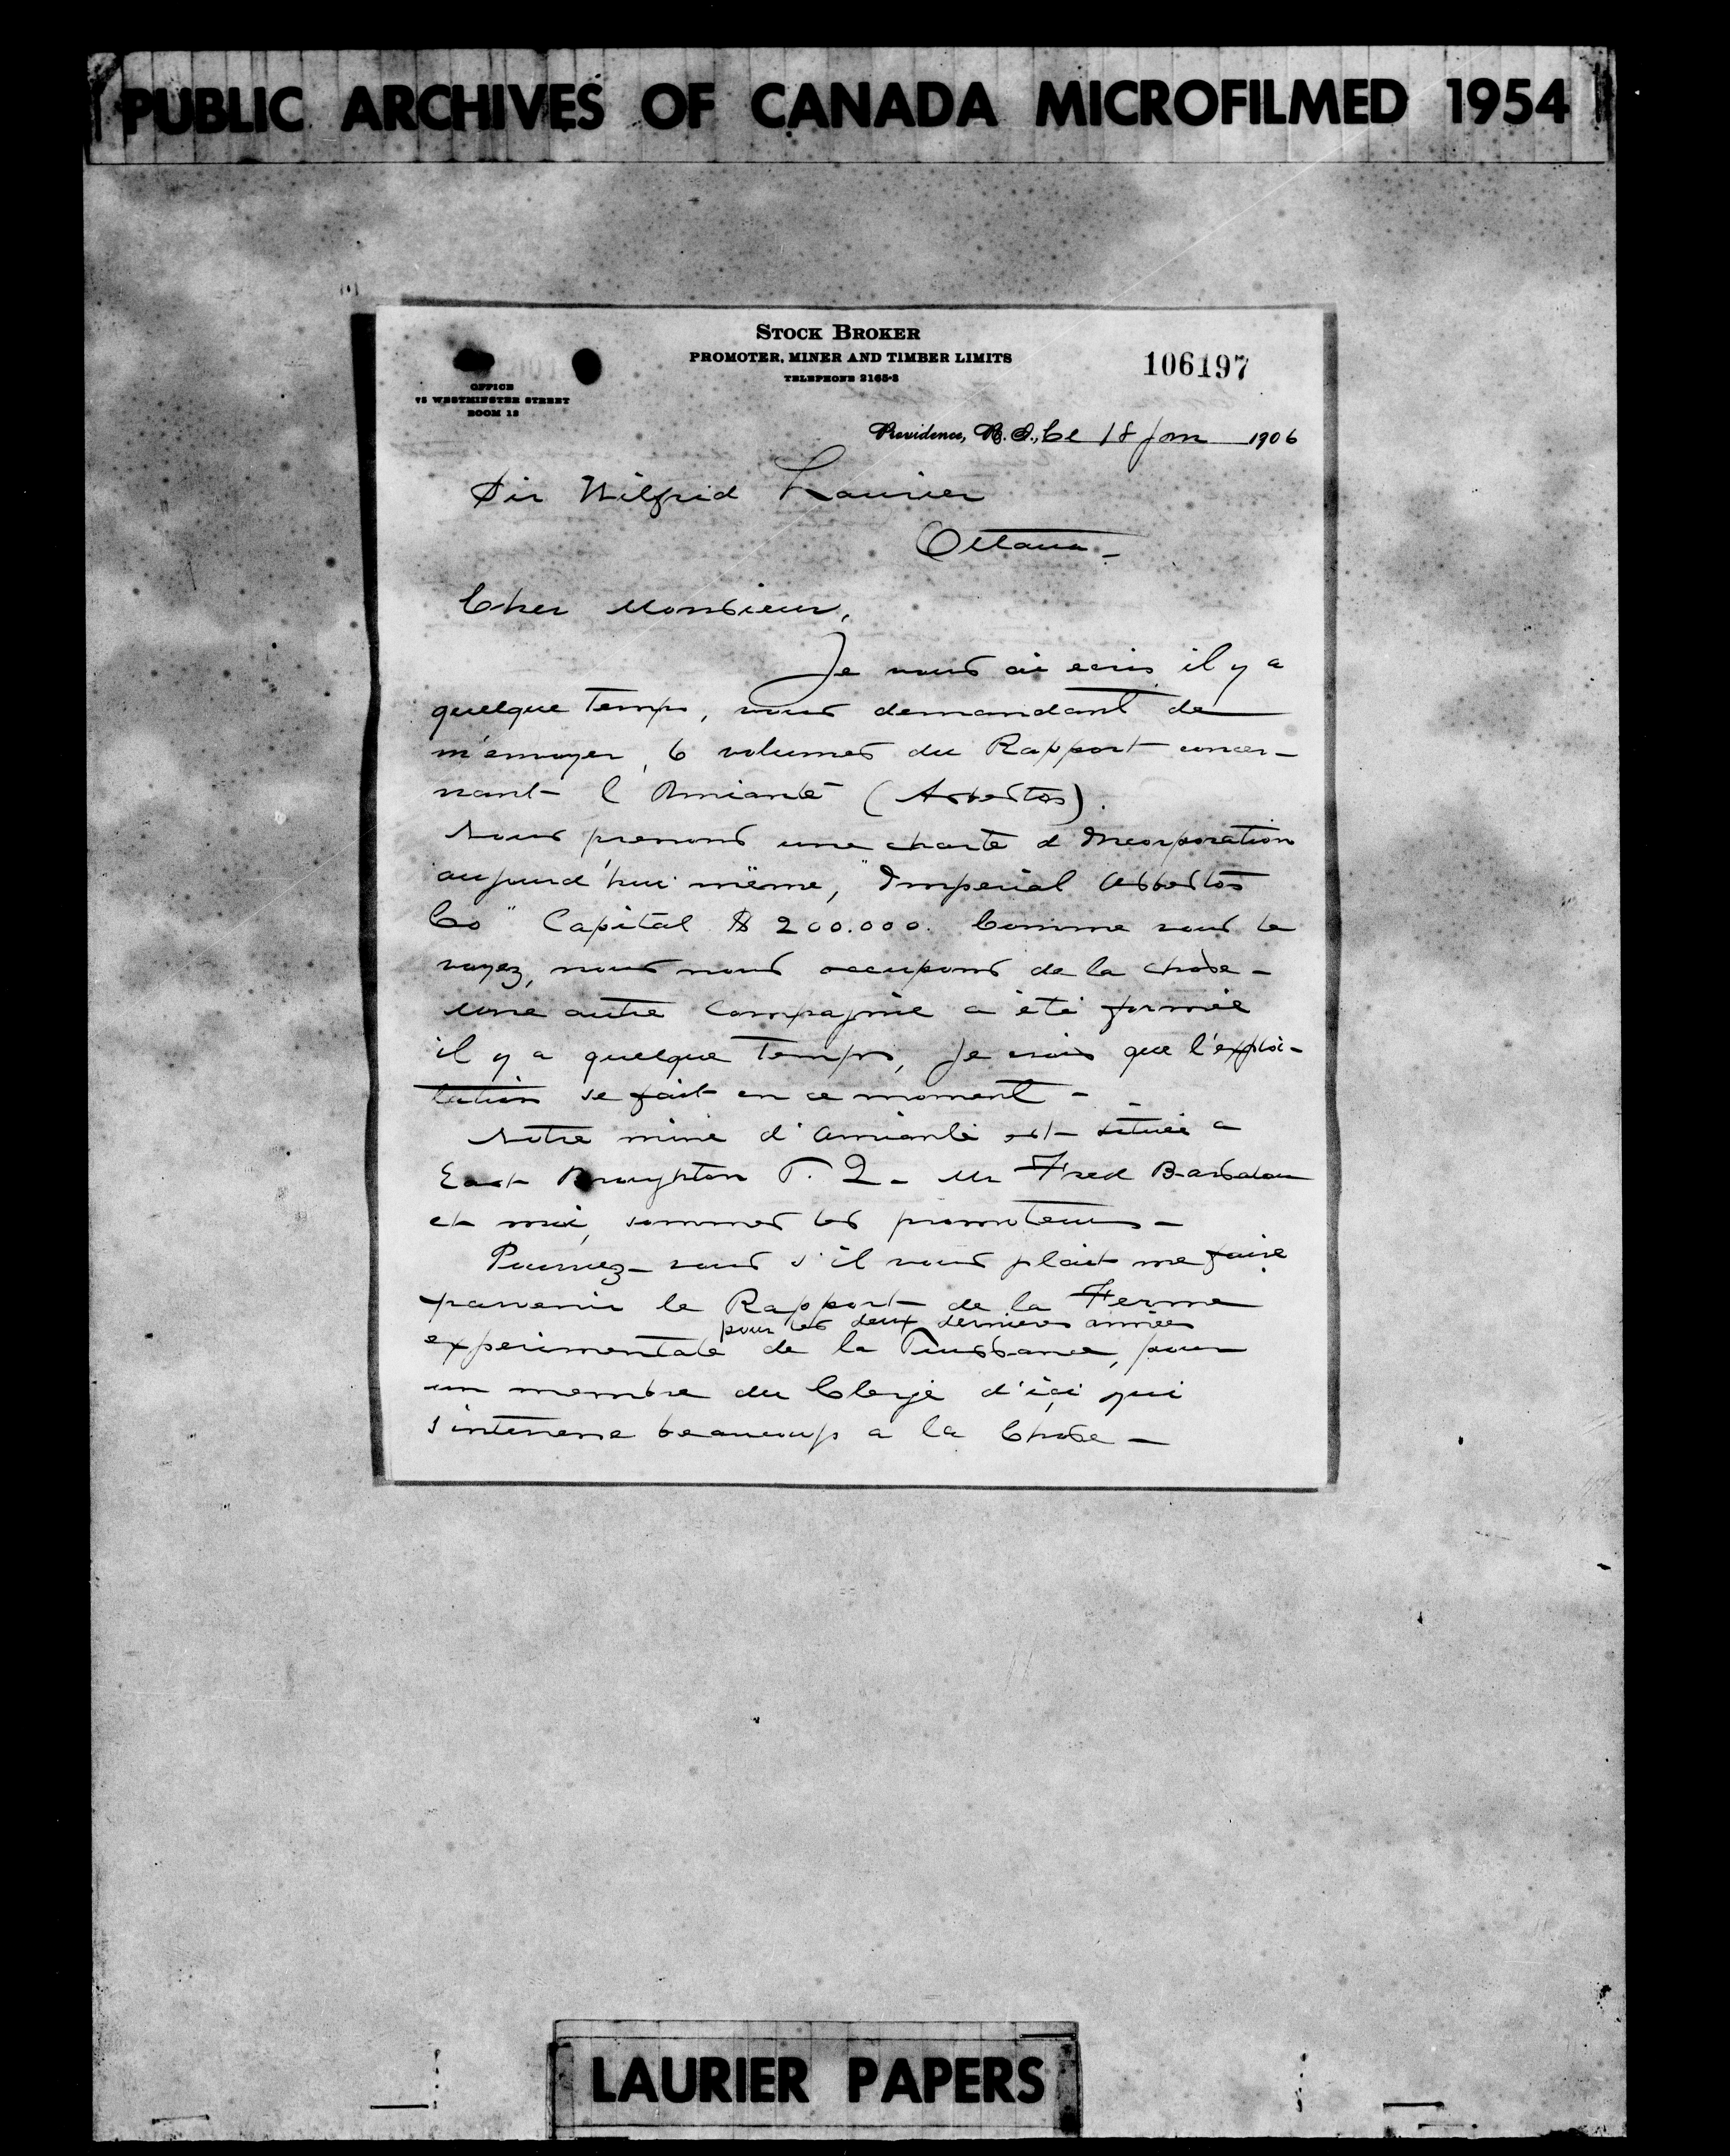 PUBLIC ARCHIVES OF CANADA MICROFILMED 1954
STOCK BROKER
PROMOTER, MINER AND TIMBER LIMITS
TELEPHONE 2165-3
106197
OFFICE
75 WESTMINSTER STREET
ROOM 18
Providence, R. I., Ce 18 Jan 1906
Sir Wilfrid Laurier
Ottawa -
Cher Monsieur,
Je vous ai ecris il y a
quelque temps, vous demandant de
m'envoyer, 6 volumes du Rapport concer-
nant l'Amiante (Asbestos).
Nous prenons une charte d'Incorporation
aujourd'hui même, "Imperial Asbestos
Co" Capital $ 200.000. Comme vous le
voyez, nous nous occupons de la chose -
Une autre Compagnie a été formée
il y a quelque temps, je crois que l'exploi-
tation se fait en ce moment -
Notre mine d'Amiante est située a
East Broughton P. Q. Mr Fred
et moi, sommes les promoteurs -
Pourriez-vous s'il vous plait me faire
parvenir le Rapport de la Ferme
pour les deux dernieres années
experimentale de la Puissance, pour
un membre du Clergé d'ici qui
s'interesse beaucoup a la Chose -
LAURIER PAPERS